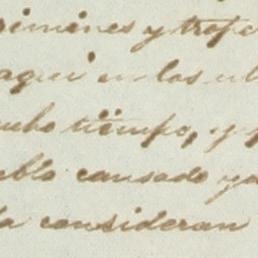 crímenes y trope
aquí en los ul
mucho tiempo, y p
pueblo cansado ya
la consideran